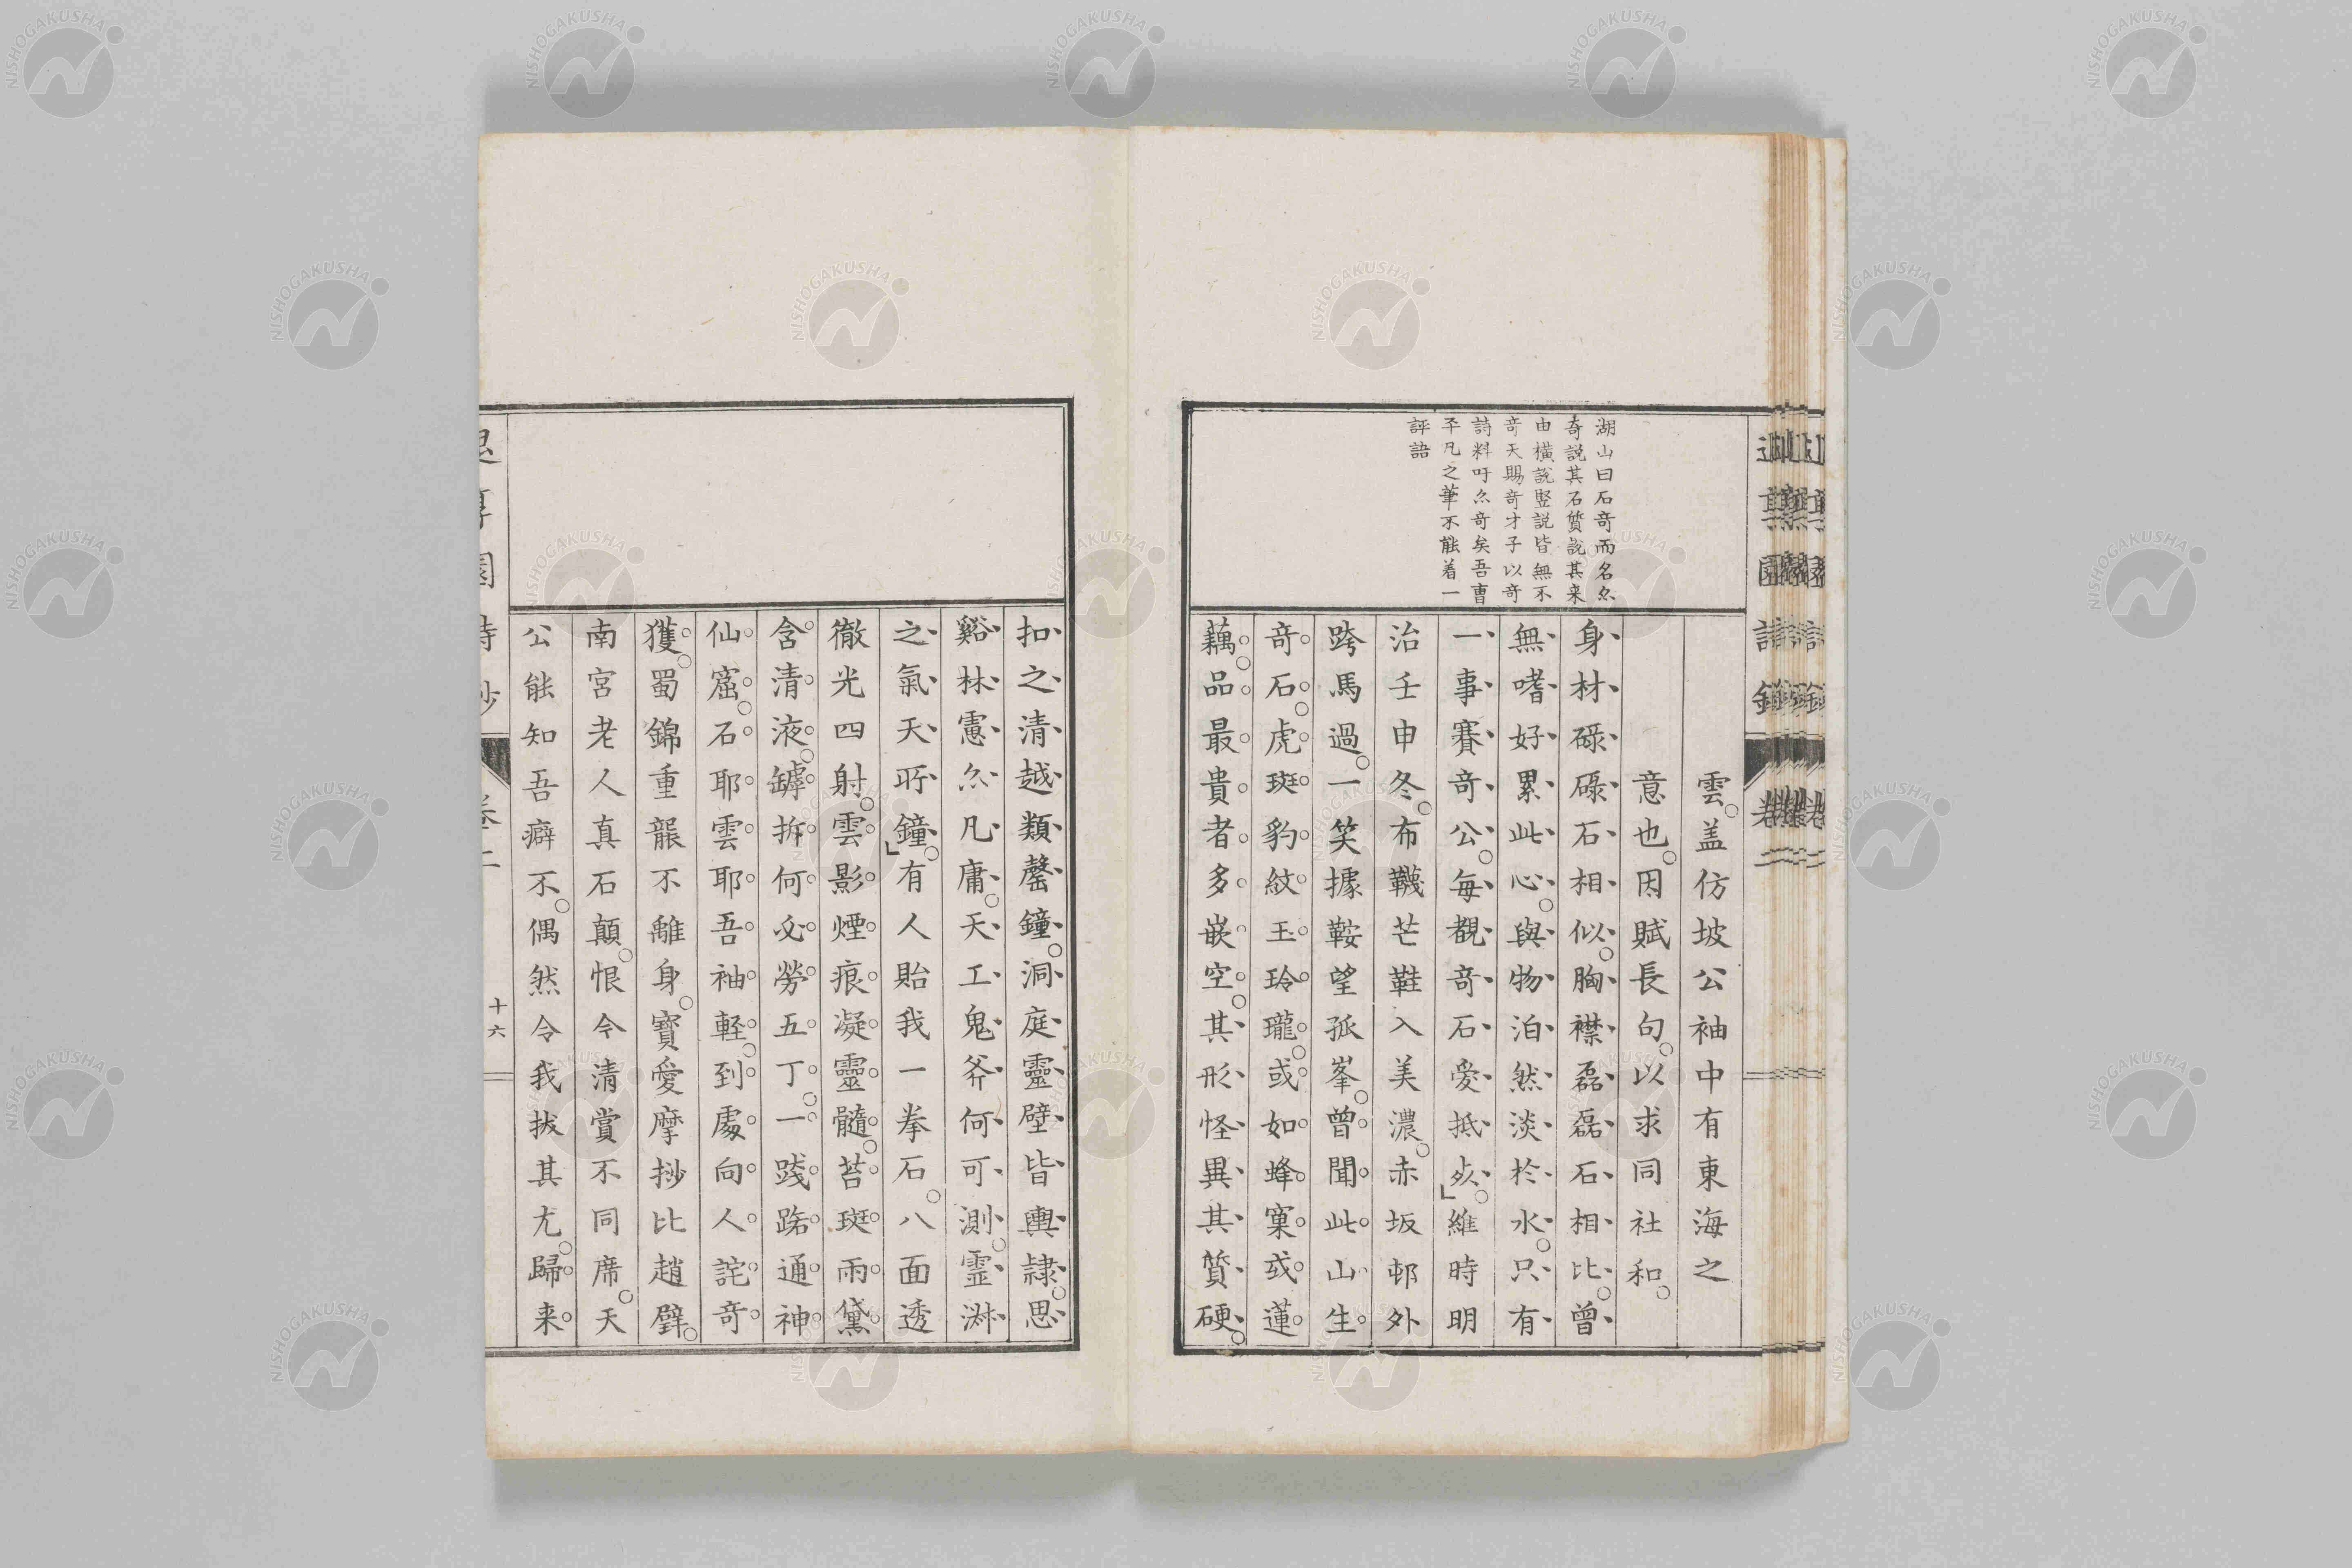 湖山曰石奇而名亦
奇説其石質説其来
由横説竪説皆無不
奇天賜奇才子以奇
詩料吁亦奇矣吾曹
平凡之筆不能着一
評語
雲。盖仿坡公袖中有東海之
意也。因賦長句。以求同社和。
身材碌碌石相似。胸襟磊磊石相比。曾
無嗜好累此心。與物泊然淡於水。只有
一事賽奇公。每覩奇石愛抵死。」維時明
治壬申冬。布韈芒鞋入美濃。赤坂邨外
跨馬過。一笑據鞍望孤峯。曾聞此山生
奇石。虎斑豹紋玉玲瓏。或如蜂窠或蓮
藕。品最貴者多嵌空。其形怪異其質硬。
扣之清越類罄鐘。洞庭靈壁皆輿隷。思
谿林慮亦凡庸。天工鬼斧何可測。霊淋
之氣天所鐘。」有人貽我一拳石。八面透
徹光四射。雲影煙痕凝靈髓。苔斑雨黛
含清液。罅拆何必勞五丁。一踐踏通神
仙窟。石耶雲耶吾袖軽。到處向人詫奇
獲。蜀錦重龍不離身。寶愛摩抄比趙璧。
南宮老人真石顛。恨今清賞不同席。天
公能知吾癖不。偶然令我拔其尤。歸来
卷二
十六
NISHOGAKUSHA